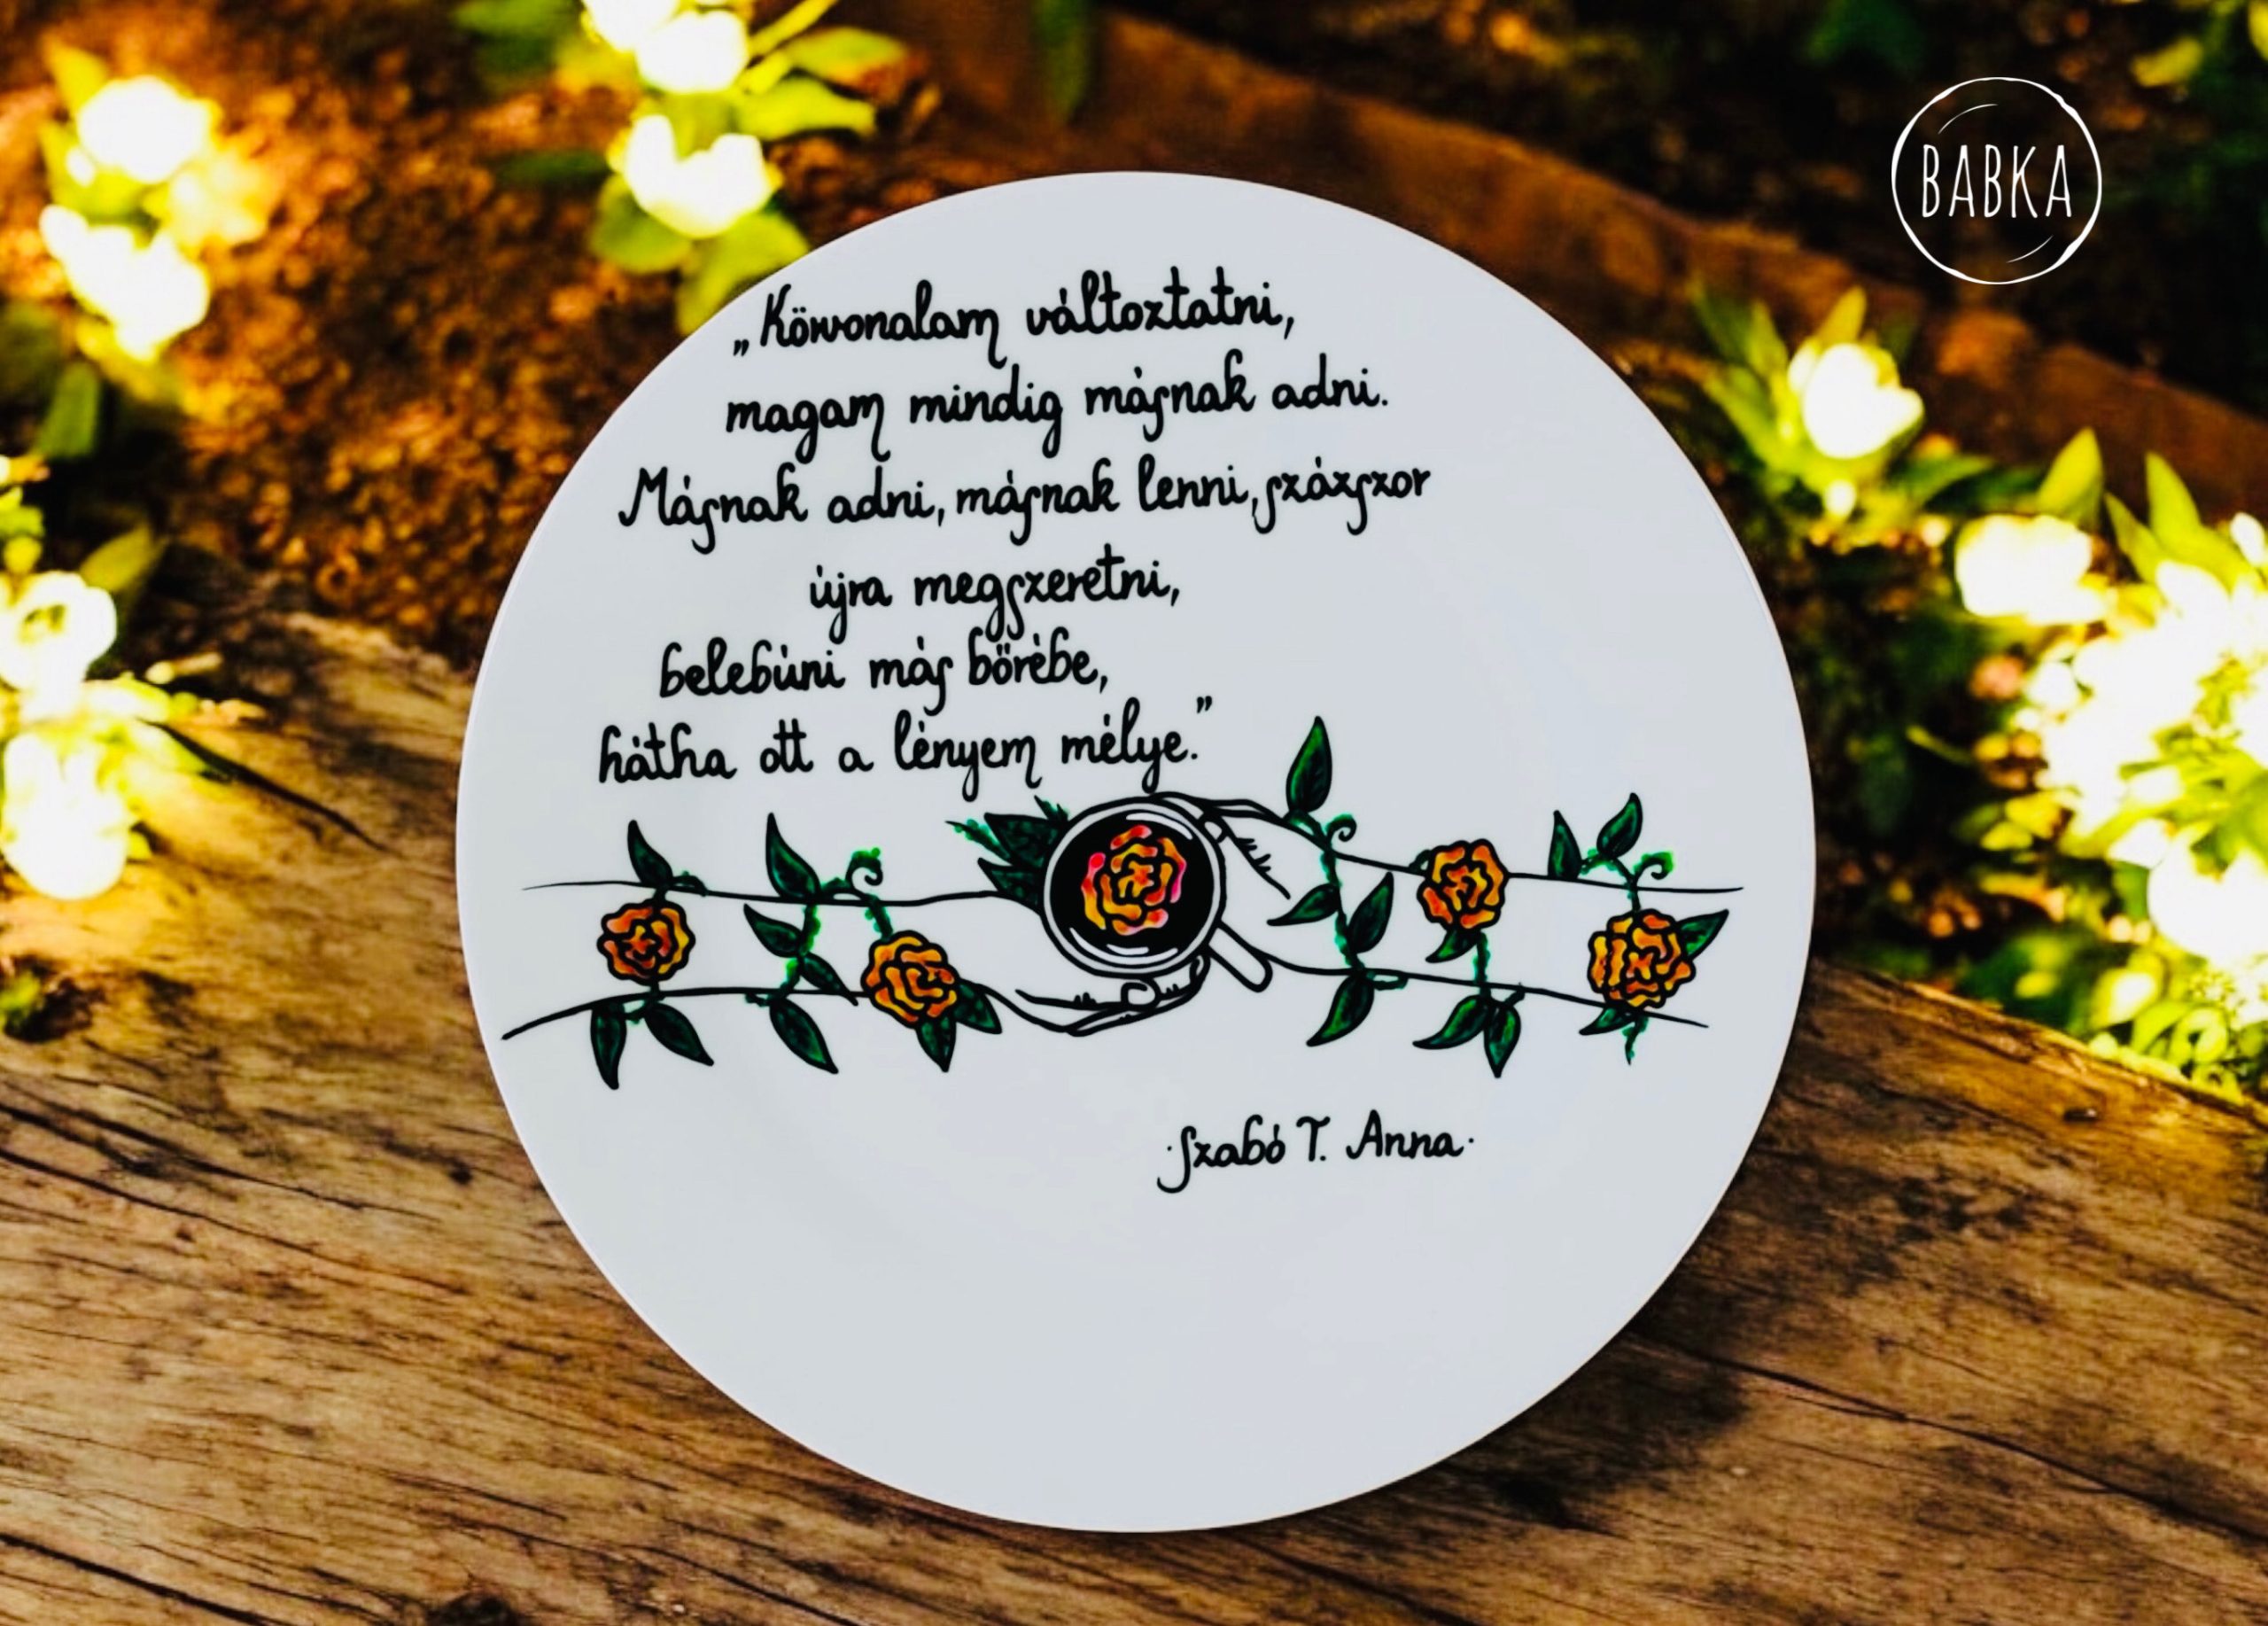 BABKA
„Körvonalam változtatni,
magam mindig másnak adni.
Másnak adni, másnak lenni, százszor
újra megszeretni,
belebúni más bőrébe,
hátha ott a lényem mélye.”
·Szabó T. Anna·